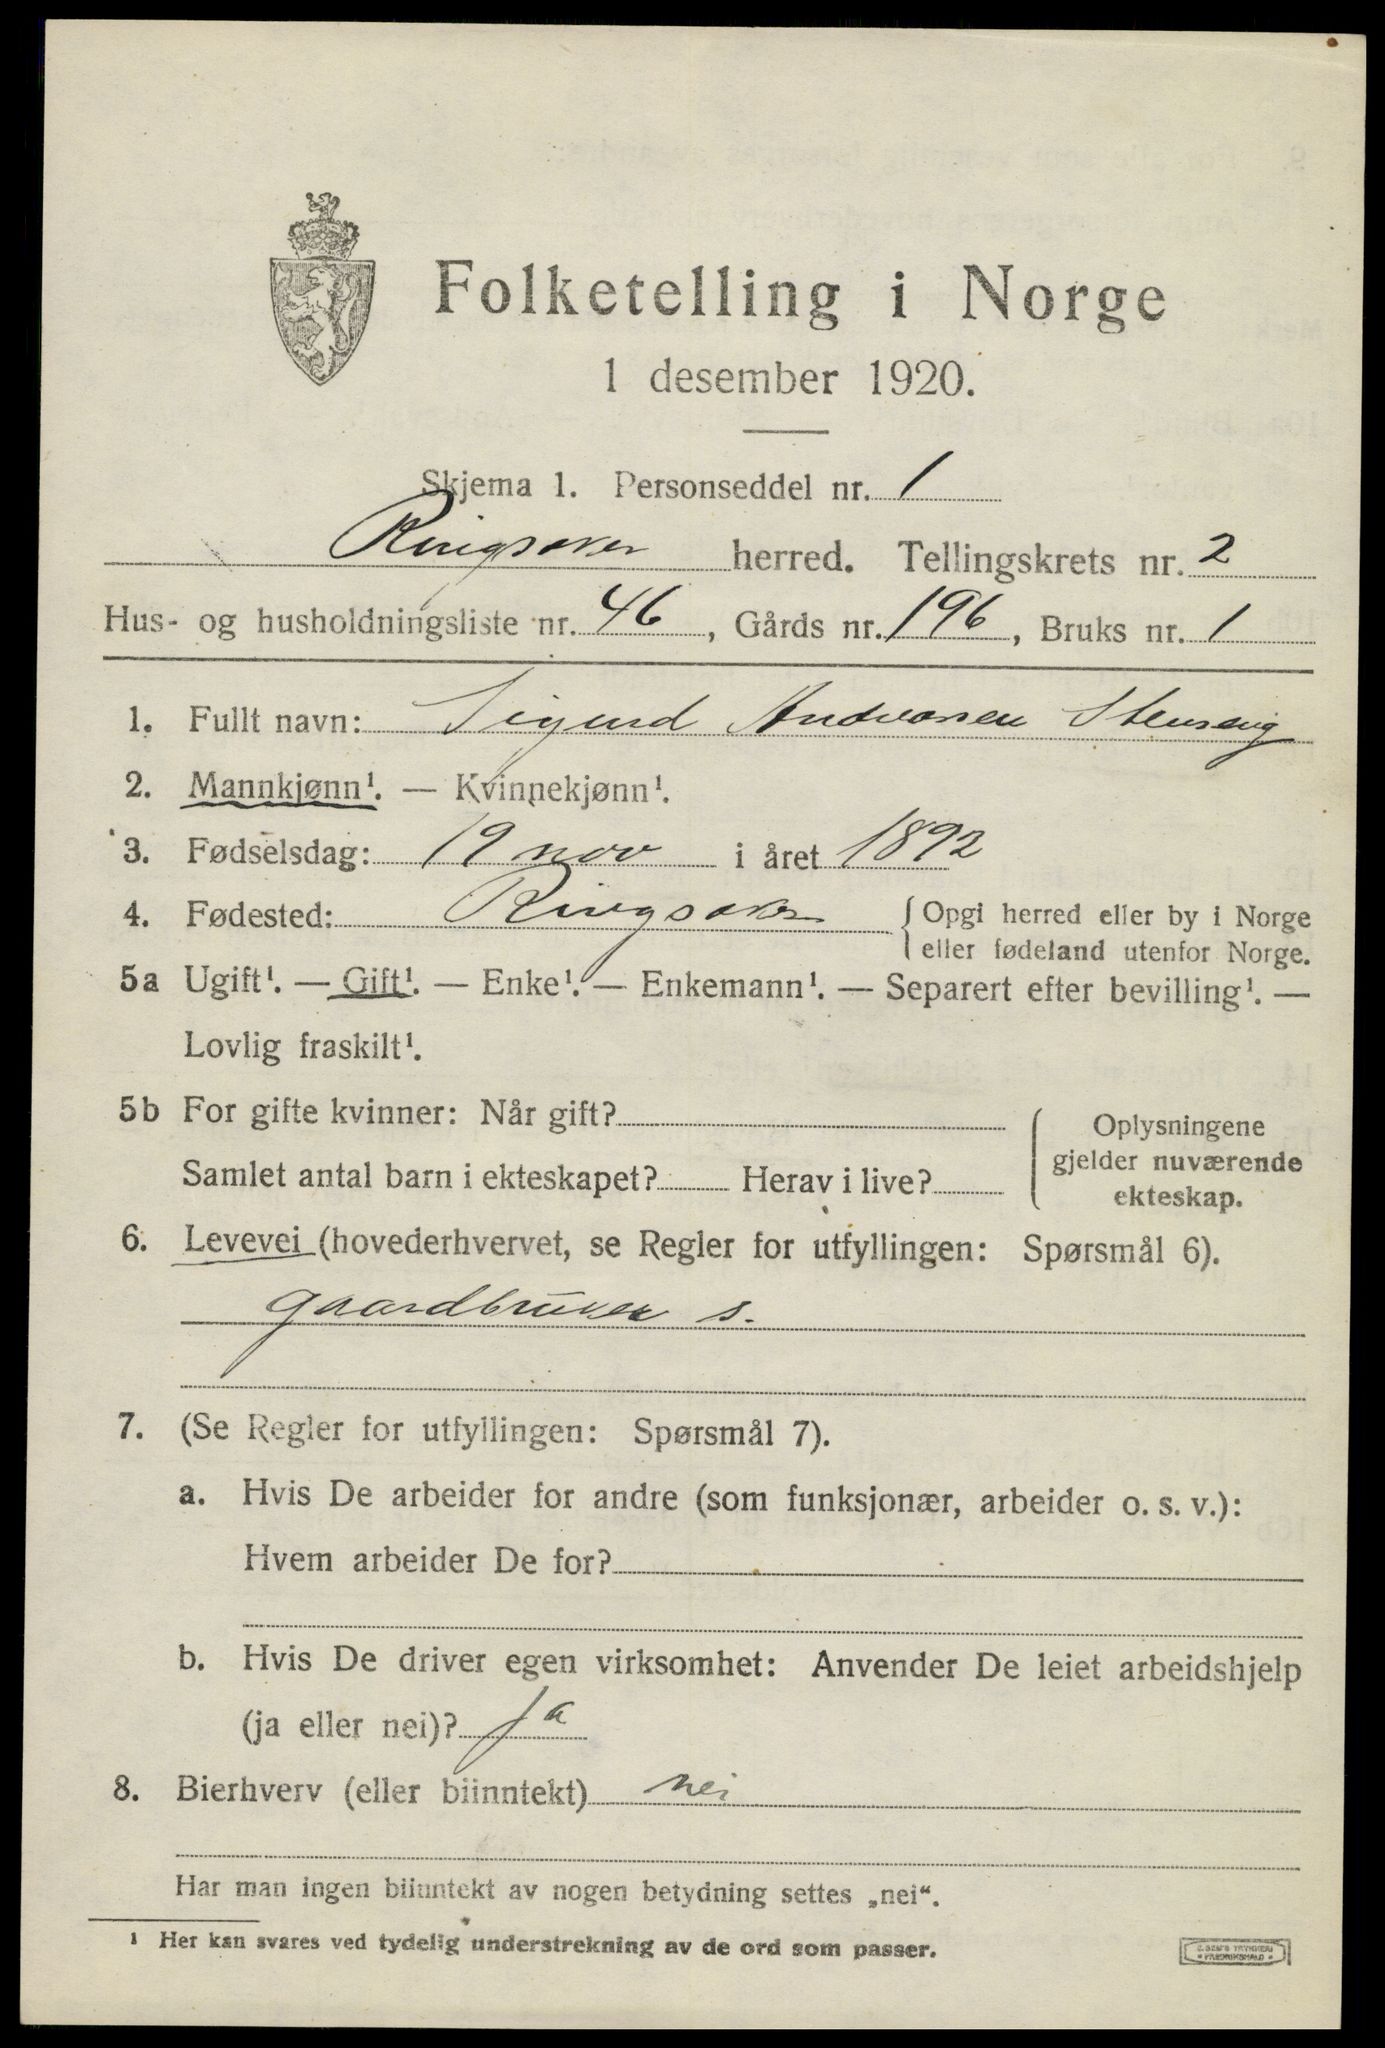 Folketelling i Norge
1 desember 1920.
Skjema 1. Personseddel nr. 1
Ringsaker herred. Tellingskrets nr. 2
Hus- og husholdningsliste nr. 46, Gårds nr. 196, Bruks nr. 1
1. Fullt navn: Sigurd Andreassen Stenseng
2. Mannkjønn¹. — Kvinnekjønn¹.
3. Fødselsdag: 19 nov i året 1892
4. Fødested: Ringsaker { Opgi herred eller by i Norge
eller fødeland utenfor Norge.
5a Ugift¹. — Gift¹. — Enke¹. — Enkemann¹. — Separert efter bevilling¹. —
Lovlig fraskilt¹.
5b For gifte kvinner: Når gift?
Samlet antal barn i ekteskapet? Herav i live?
Oplysningene
gjelder nuværende
ekteskap.
6. Levevei (hovederhvervet, se Regler for utfyllingen: Spørsmål 6).
gaardbruker s.
7. (Se Regler for utfyllingen: Spørsmål 7).
a. Hvis De arbeider for andre (som funksjonær, arbeider o. s. v.):
Hvem arbeider De for?
b. Hvis De driver egen virksomhet: Anvender De leiet arbeidshjelp
(ja eller nei)? ja
8. Bierhverv (eller biinntekt) nei
Har man ingen biinntekt av nogen betydning settes „nei“.
¹ Her kan svares ved tydelig understrekning av de ord som passer.